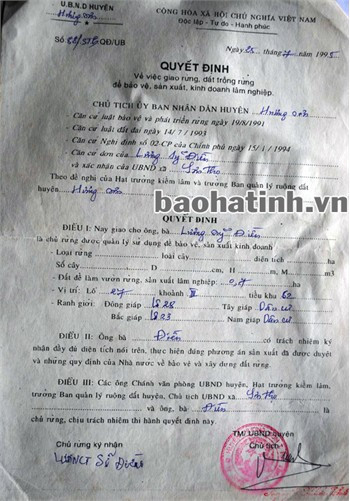 U.B.N.D HUYỆN
Hương Sơn
CỘNG HÒA XÃ HỘI CHỦ NGHĨA VIỆT NAM
Độc lập - Tự do - Hạnh phúc
Số QĐ/UB
Ngày 25 tháng 7 năm 1995
QUYẾT ĐỊNH
Về việc giao rừng, đất trồng rừng
để bảo vệ, sản xuất, kinh doanh lâm nghiệp.
CHỦ TỊCH ỦY BAN NHÂN DÂN HUYỆN Hương Sơn
- Căn cứ luật bảo vệ và phát triển rừng ngày 19/8/1991
- Căn cứ luật đất đai ngày 14/7/1993
- Căn cứ Nghị định số 02-CP của Chính phủ ngày 15/1/1994
- Căn cứ đơn của Lương Sỹ Điền
và xác nhận của UBND xã Sơn Thọ
Theo đề nghị của Hạt trưởng kiểm lâm và trưởng Ban quản lý ruộng đất
huyện Hương Sơn
baohatinh.vn
QUYẾT ĐỊNH
ĐIỀU I: Nay giao cho ông, bà Lương Sỹ Điền
là chủ rừng được quản lý sử dụng để bảo vệ, sản xuất kinh doanh
- Loại rừng loại cây diện tích ha
Số cây D cm, H m, M m3
- Đất để làm vườn rừng, sản xuất lâm nghiệp: ha
- Vị trí: Lô 27 khoảnh III tiểu khu 62
- Ranh giới: Đông giáp lô 28 Tây giáp Dân cư
Bắc giáp lô 23 Nam giáp Dân cư
ĐIỀU II: Ông bà Điền có trách nhiệm ký
nhận đầy đủ diện tích nói trên, thực hiện đúng phương án sản xuất đã được duyệt
và những quy định của Nhà nước về bảo vệ và xây dựng đất rừng.
ĐIỀU III: Các ông Chánh văn phòng UBND huyện, Hạt trưởng kiểm lâm,
trưởng Ban quản lý ruộng đất huyện, Chủ tịch UBND xã Sơn Thọ
và ông, bà Điền là
chủ rừng, chịu trách nhiệm thi hành quyết định này.
Chủ rừng ký nhận
TM/UBND huyện
Chủ tịch